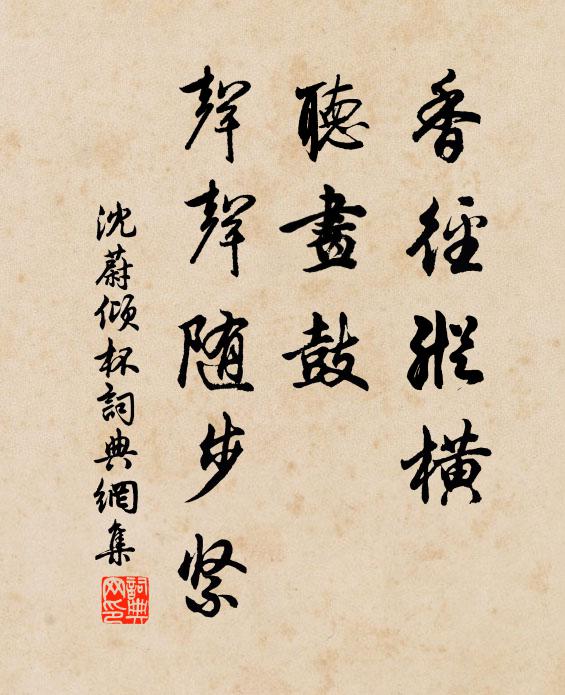 香徑縱橫
聽畫鼓
聲聲随步緊
沈蔚傾杯詞典網集
詞典网印